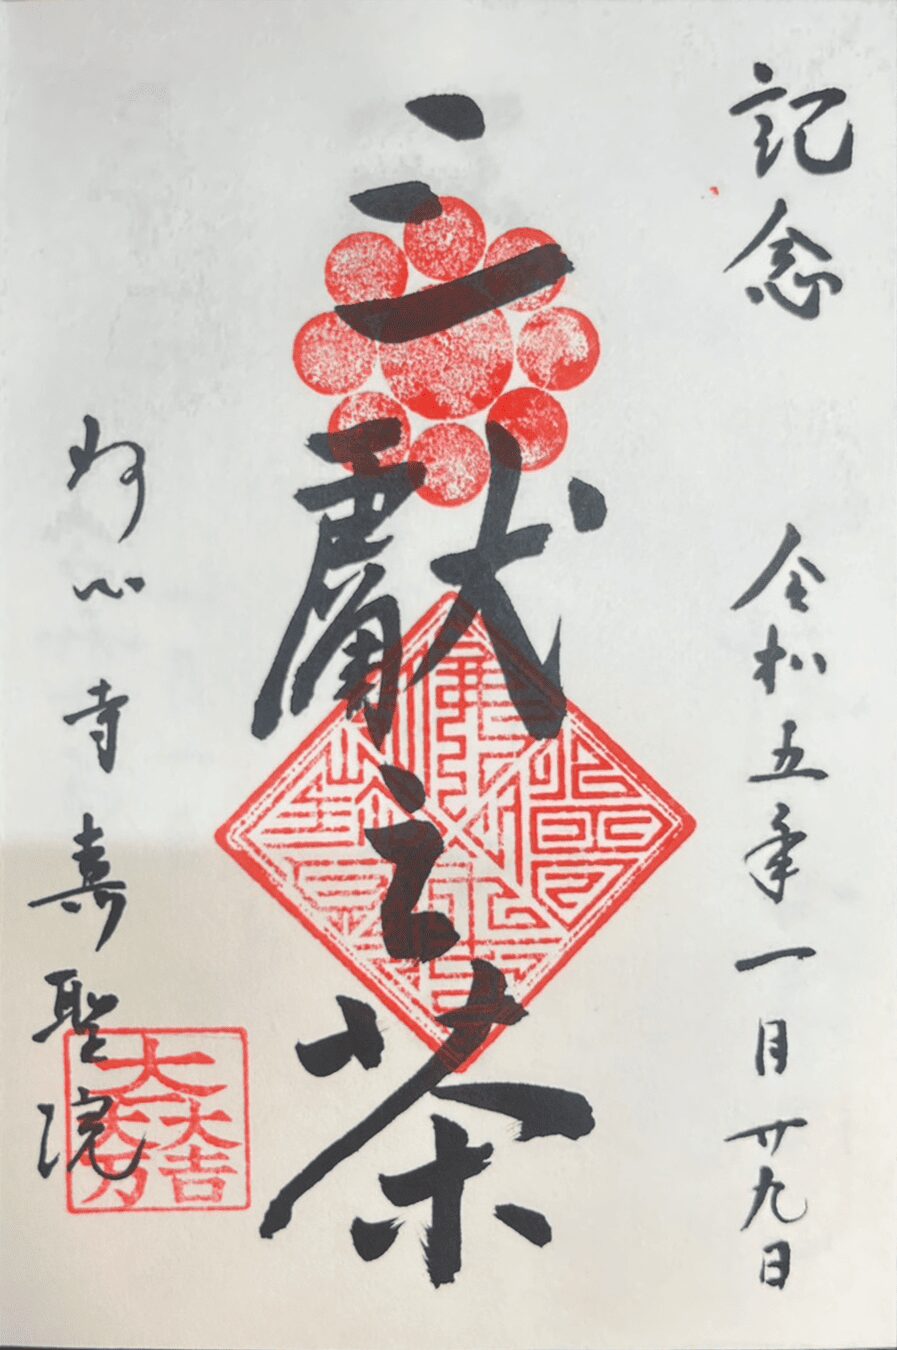 記念 令和五年一月廿九日
三獻之茶
妙心寺 壽聖院
大一大万大吉